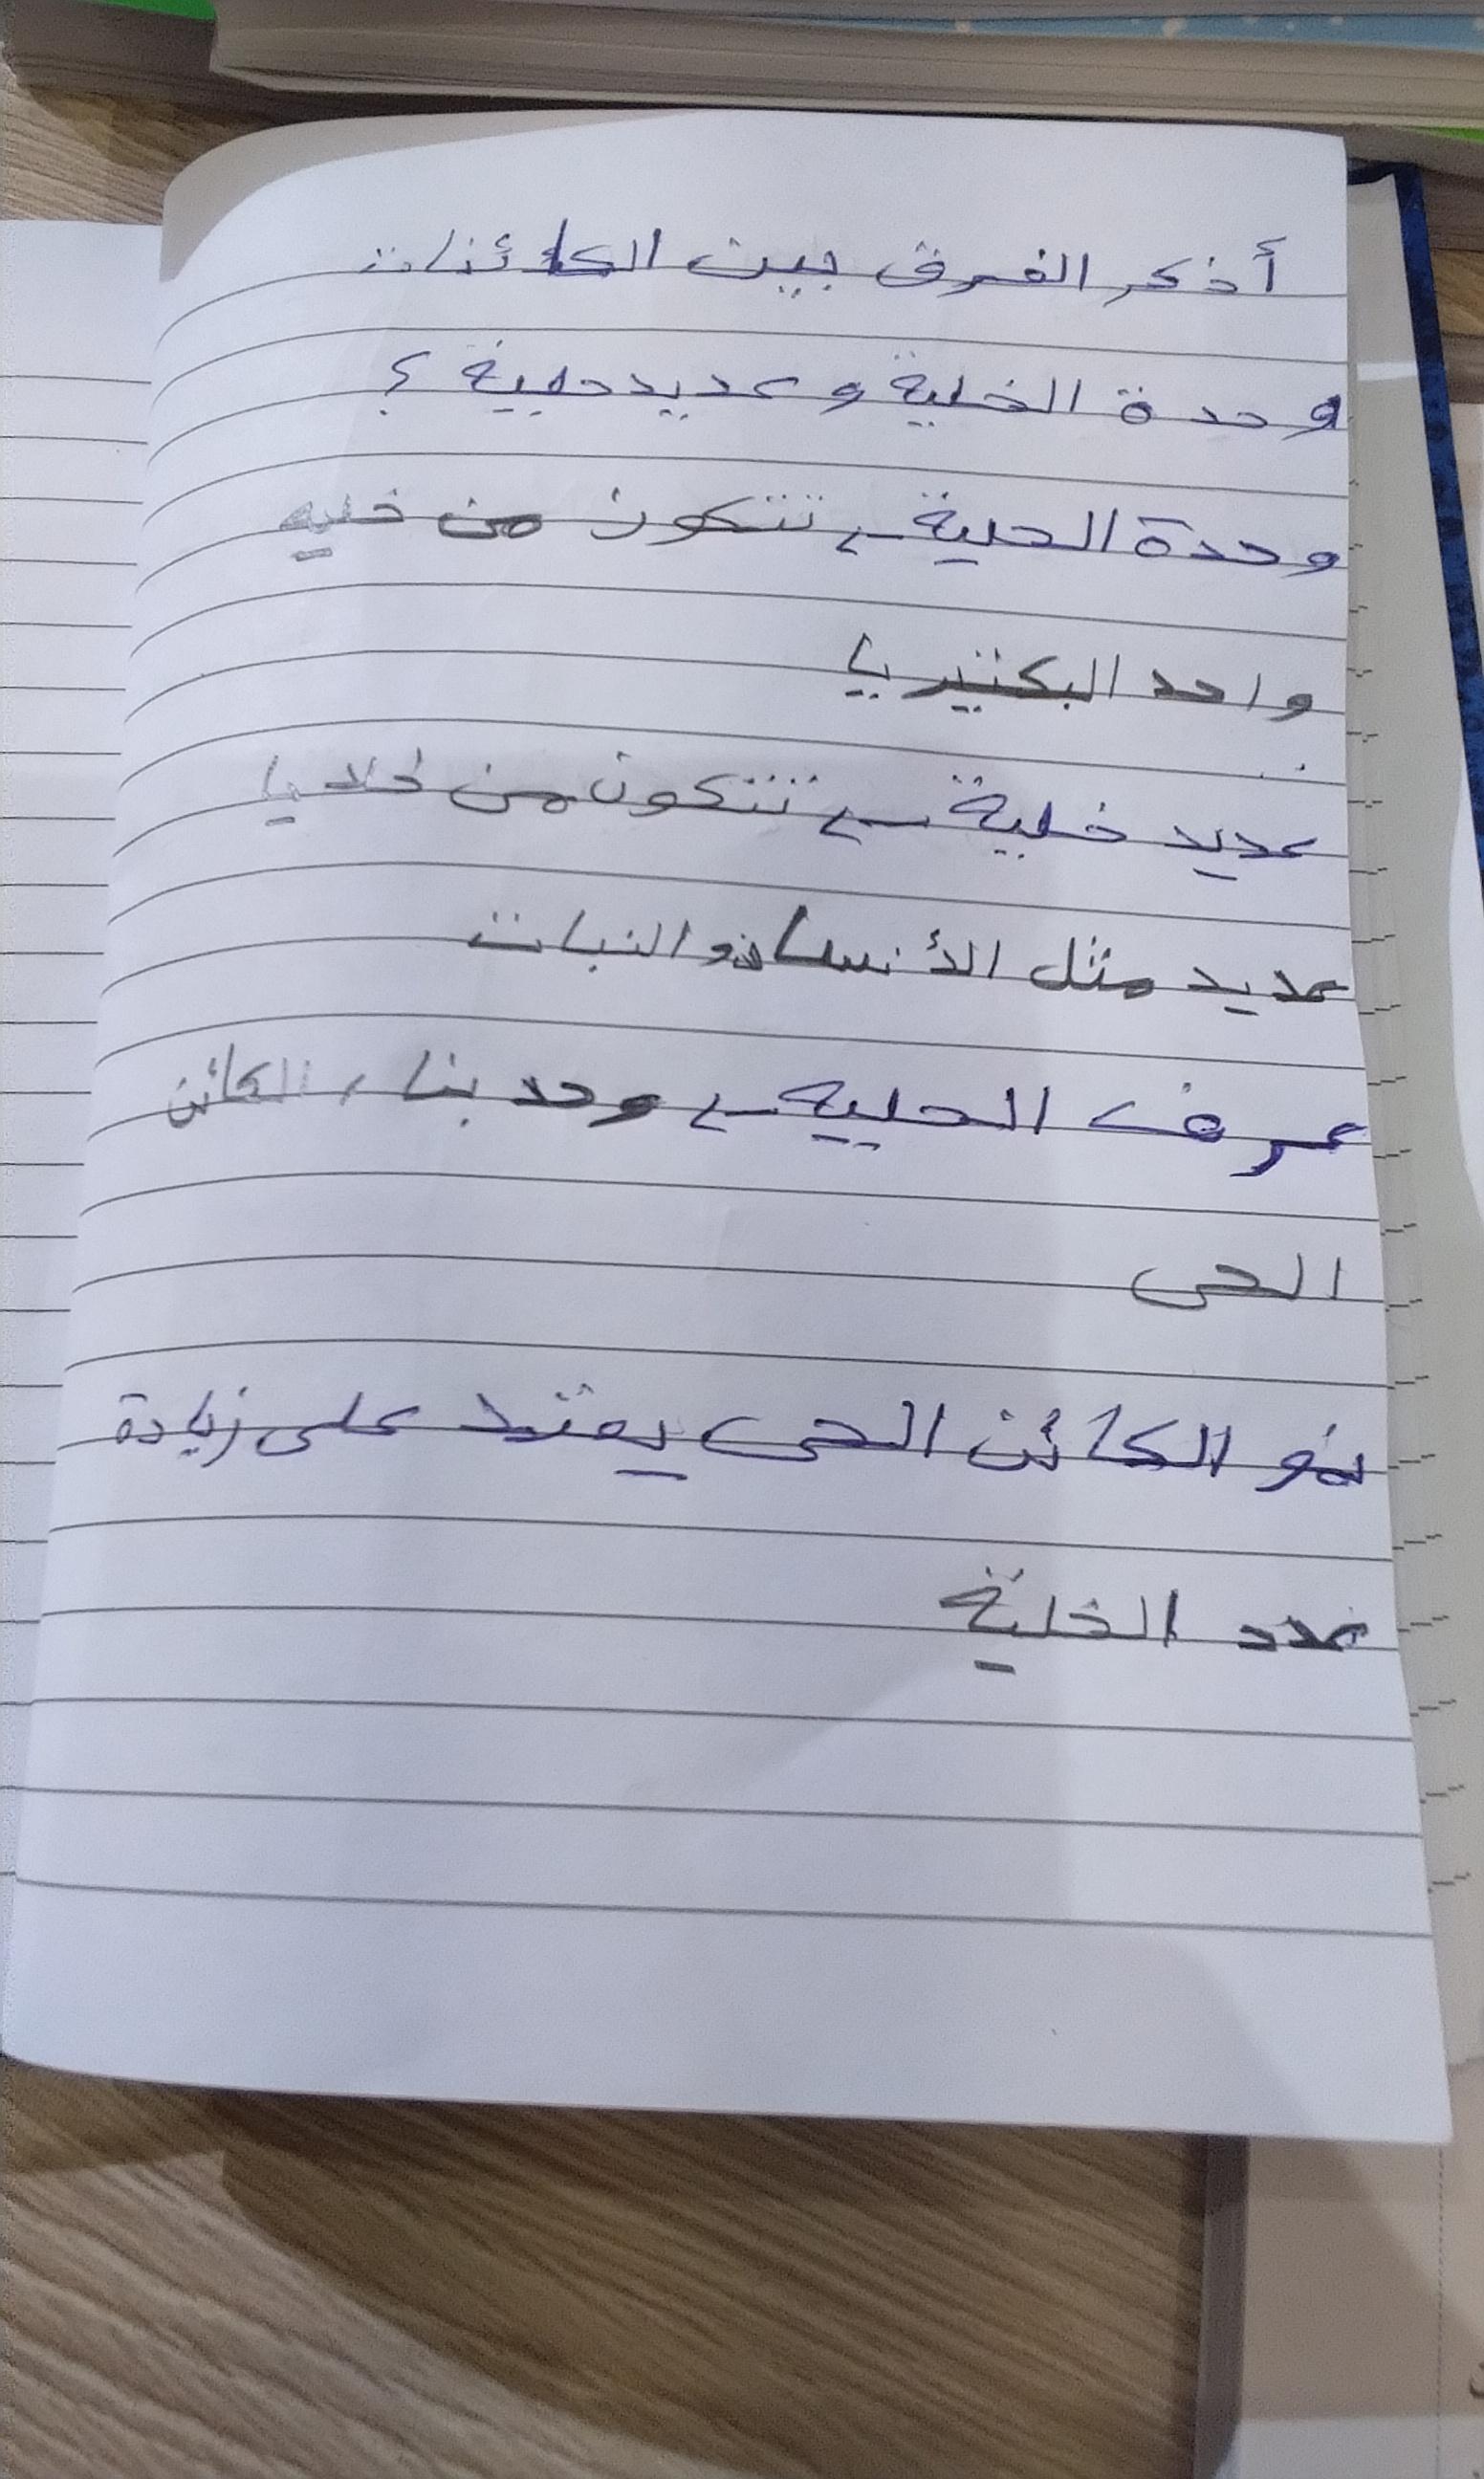 أذكر الفرق بين الكائنات
وحدة الخلية وعديد حلية ؟
وحدة الحلية ← تتكون من خليه
واحد البكتيريا
عديد خلية ← تتكون من خلايا
عديد مثل الأنسان والنبات
عرف الحليه ← وحد بناء الكائن
الحى
نمو الكائن الحى يعتمد على زيادة
عدد الخلية